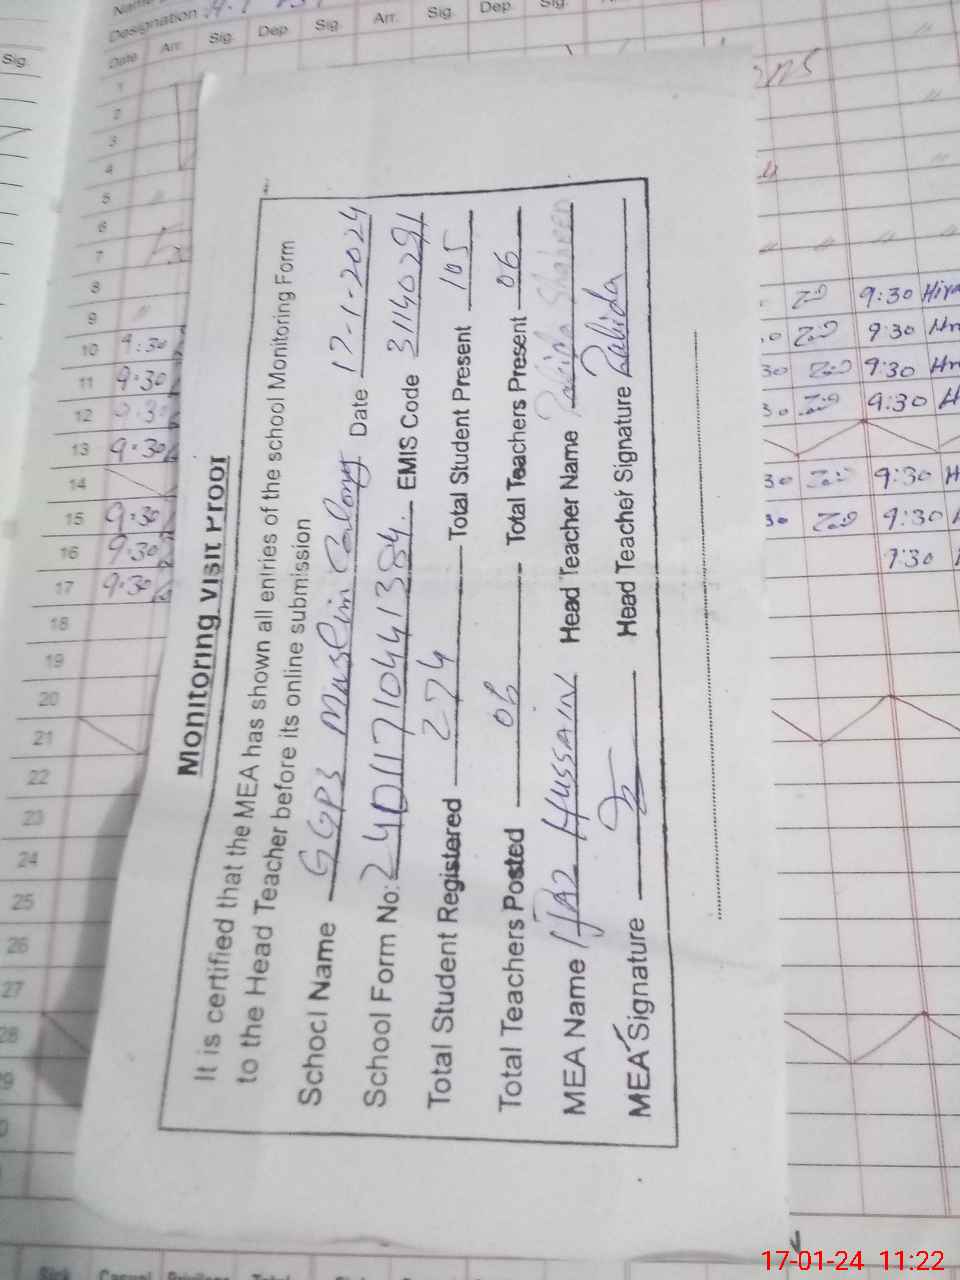 Monitoring Visit Proof
It is certified that the MEA has shown all enіries of the school Monitoring Form
to the Head Teacher before its online submission
School Name GGPS Muslim Colony Date 17-1-2024
School Form No: 24D11710441384. EMIS Code 31140291
Total Student Registered 274 Total Student Present 105
Total Teachers Posted 06 Total Teachers Present 06
MEA Name IJAZ HUSSAIN Head Teacher Name Shaheen
MEA Signature Head Teacher Signature
Designation
Date Arr. Sig. Dep Sig. Arr. Sig. Dep Sig.
Sig.
1
2
3
4
5
6
7
8
9
10 9:30
11 9:30
12 9:30
13 9:30
14
15 9:30
16 9:30
17 9:30
18
19
20
21
22
23
24
25
26
27
28
9:30
9:30
30 9:30
30 9:30
30 9:30
30 9:30
9:30
Sick Casual Privilege Total
17-01-24 11:22